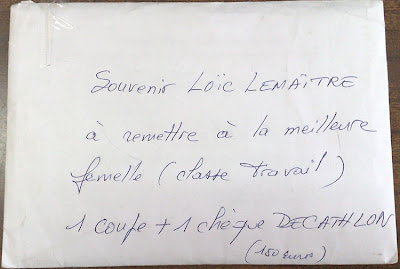 Souvenir Loïc LEMAÎTRE
à remettre à la meilleure
femelle (classe travail)
1 coupe + 1 chèque DECATHLON
(150 euros)